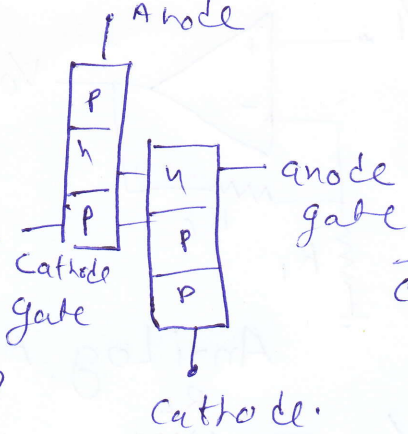 Anode
P
n
n
anode
gate
P
P
Cathode
gate
P
Cathode.